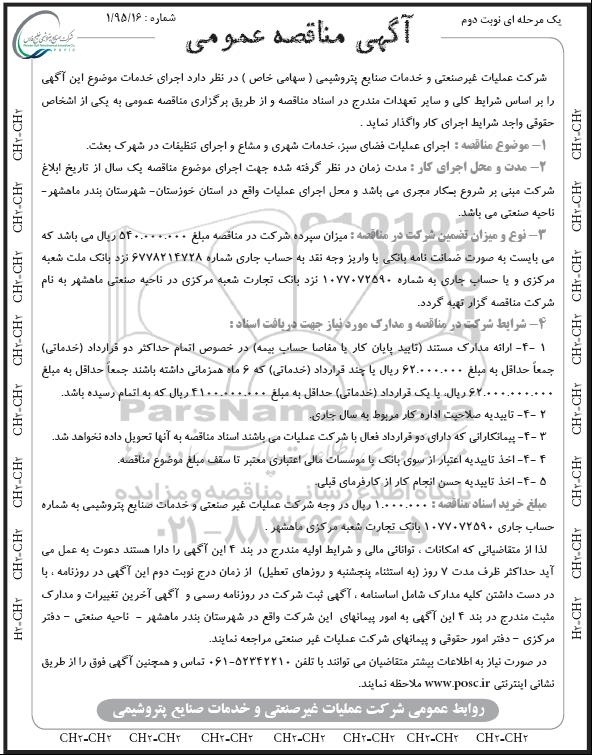 یک مرحله ای نوبت دوم
آگهی مناقصه عمومی
شماره : ۱/۹۵/۱۶
شرکت عملیات غیرصنعتی و خدمات صنایع پتروشیمی ( سهامی خاص ) در نظر دارد اجرای خدمات موضوع این آگهی
را بر اساس شرایط کلی و سایر تعهدات مندرج در اسناد مناقصه و از طریق برگزاری مناقصه عمومی به یکی از اشخاص
حقوقی واجد شرایط اجرای کار واگذار نماید .
۱- موضوع مناقصه : اجرای عملیات فضای سبز، خدمات شهری و مشاع و اجرای تنظیفات در شهرک بعثت.
۲- مدت و محل اجرای کار : مدت زمان در نظر گرفته شده جهت اجرای موضوع مناقصه یک سال از تاریخ ابلاغ
شرکت مبنی بر شروع بکار مجری می باشد و محل اجرای عملیات واقع در استان خوزستان- شهرستان بندر ماهشهر-
ناحیه صنعتی می باشد.
۳- نوع و میزان تضمین شرکت در مناقصه : میزان سپرده شرکت در مناقصه مبلغ ۵۴۰.۰۰۰.۰۰۰ ریال می باشد که
می بایست به صورت ضمانت نامه بانکی یا واریز وجه نقد به حساب جاری شماره ۶۷۷۸۲۱۴۷۲۸ نزد بانک ملت شعبه
مرکزی و یا حساب جاری به شماره ۱۰۷۷۰۷۲۵۹۰ نزد بانک تجارت شعبه مرکزی در ناحیه صنعتی ماهشهر به نام
شرکت مناقصه گزار تهیه گردد.
۴- شرایط شرکت در مناقصه و مدارک مورد نیاز جهت دریافت اسناد :
۱ -۴- ارائه مدارک مستند (تایید پایان کار یا مفاصا حساب بیمه) در خصوص اتمام حداکثر دو قرارداد (خدماتی)
جمعاً حداقل به مبلغ ۶۲.۰۰۰.۰۰۰ ریال یا چند قرارداد (خدماتی) که ۶ ماه همزمانی داشته باشند جمعاً حداقل به مبلغ
۶۲.۰۰۰.۰۰۰.۰۰۰ ریال، یا یک قرارداد (خدماتی) حداقل به مبلغ ۴۱۰۰.۰۰۰.۰۰۰ ریال که به اتمام رسیده باشد.
۲ -۴- تاییدیه صلاحیت اداره کار مربوط به سال جاری.
۳ -۴- پیمانکارانی که دارای دو قرارداد فعال با شرکت عملیات می باشند اسناد مناقصه به آنها تحویل داده نخواهد شد.
۴ -۴- اخذ تاییدیه اعتبار از سوی بانک یا موسسات مالی اعتباری معتبر تا سقف مبلغ موضوع مناقصه.
۵ -۴- اخذ تاییدیه حسن انجام کار از کارفرمای قبلی.
مبلغ خرید اسناد مناقصه : ۱.۰۰۰.۰۰۰ ریال در وجه شرکت عملیات غیر صنعتی و خدمات صنایع پتروشیمی به شماره
حساب جاری ۱۰۷۷۰۷۲۵۹۰ بانک تجارت شعبه مرکزی ماهشهر .
لذا از متقاضیانی که امکانات ، توانائی مالی و شرایط اولیه مندرج در بند ۴ این آگهی را دارا هستند دعوت به عمل می
آید حداکثر ظرف مدت ۷ روز (به استثناء پنجشنبه و روزهای تعطیل) از زمان درج نوبت دوم این آگهی در روزنامه ، با
در دست داشتن کلیه مدارک شامل اساسنامه ، آگهی ثبت شرکت در روزنامه رسمی و آگهی آخرین تغییرات و مدارک
مثبت مندرج در بند ۴ این آگهی به امور پیمانهای این شرکت واقع در شهرستان بندر ماهشهر - ناحیه صنعتی - دفتر
مرکزی - دفتر امور حقوقی و پیمانهای شرکت عملیات غیر صنعتی مراجعه نمایند.
در صورت نیاز به اطلاعات بیشتر متقاضیان می توانند با تلفن ۵۲۳۴۲۲۱۰-۰۶۱ تماس و همچنین آگهی فوق را از طریق
نشانی اینترنتی www.posc.ir ملاحظه نمایند.
روابط عمومی شرکت عملیات غیرصنعتی و خدمات صنایع پتروشیمی
CH۲-CH۲ CH۲-CH۲ CH۲-CH۲ CH۲-CH۲ CH۲-CH۲ CH۲-CH۲ CH۲-CH۲
ParsNamadData
پایگاه اطلاع رسانی مناقصه و مزایده
۰۲۱-۸۸۳۴۹۶۷۰-۵